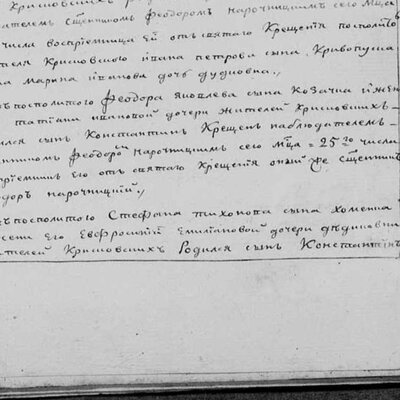 Крисковскихъ
ателемъ Сщенникомъ Феодоромъ нарочницкимъ сего мца
числа воспрїемница Ей отъ святаго Крещенїя посполитого
теля Крисковского ивана петрова сына, Кривопуска
на Марина иванова дочь дудиовна,
въ посполитого Феодора Яковлева сына Козачка и жены
Татїаны ивановой дочери жителей Крисковскихъ
ился сынъ Константинъ Крещенъ наблюдателемъ
енникомъ Феодоромъ нарочницкимъ сего мца 25го числа
прїемникъ Его отъ святаго крещенїя оный же Сщенникъ
одоръ нарочницкїй,
въ посполитого Стефана тихонова сына хоменка
сени Его Евфросинїи Емилїановой дочери дѣдиовны
ателей Крисковскихъ Родился сынъ Константинъ